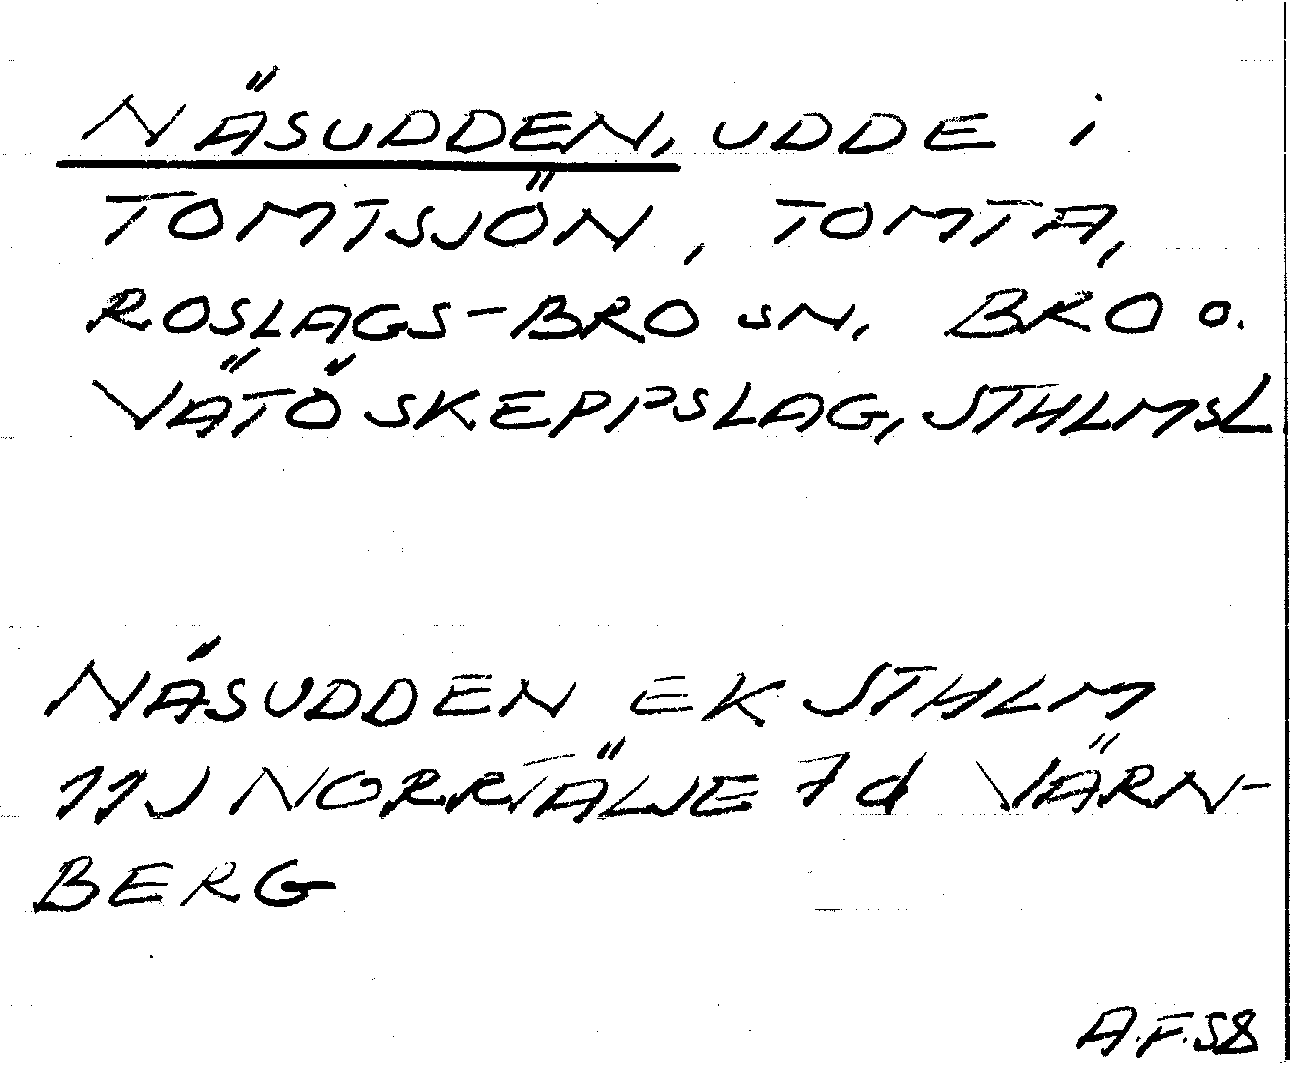 NÄSUDDEN, UDDE i
TOMTSJÖN, TOMTA,
ROSLAGS-BRO SN, BRO O.
VÄTÖ SKEPPSLAG, STHLMSL
NÄSUDDEN EK STHLM
11J NORRTÄLJE 7d VÄRN-
BERG
A.F.58